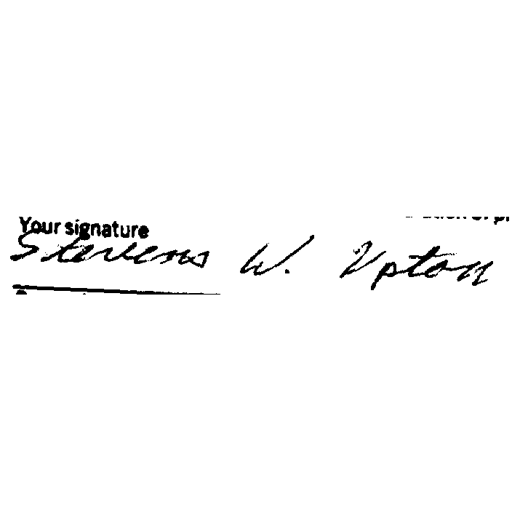 Your signature
Stevens W. Upton